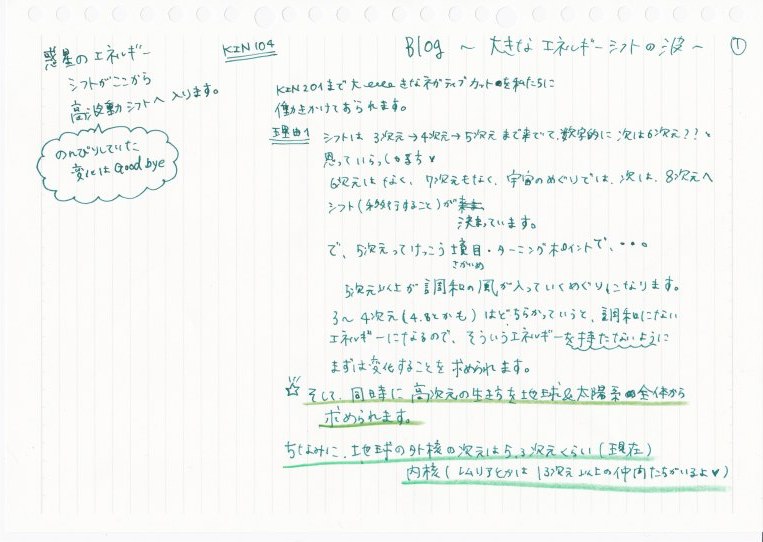 惑星のエネルギー
シフトがここから
高波動シフトへ 入ります。
のんびりしていた
変化は Good bye
KIN104
Blog ～ 大きな エネルギーシフトの波～ ①
KIN201まで大きなネガティブカットを私たちに
働きかけておられます。
理由1 シフトは 3次元→4次元→5次元 まで来てて、数字的に 次は6次元??と
思っていらっしゃる方♥
6次元はなく、7次元もなく、宇宙のめぐりでは、次は、8次元へ
シフト(移行すること)が
決まっています。
で、5次元ってけっこう 境目・ターニングポイントで、・・・。
さかいめ
5次元以上が調和の風が入っていくめぐりになります。
3～4次元(4.8とかも)はどちらかっていうと、調和にない
エネルギーになるので、そういうエネルギーを持たないように
まずは変化することを求められます。
☆ そして、同時に 高次元の生き方を地球&太陽系全体から
求められます。
ちなみに、地球の外核の次元は5.3次元くらい(現在)
内核(レムリアとかは 13次元以上の仲間たちがいるよ♥)